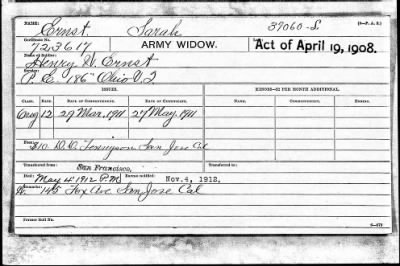 NAME: 39060-S. (3-P. A. 2)
Ernst, Sarah
Certificate No.
723617 ARMY WIDOW. Act of April 19, 1908.
Name of Soldier:
Henry W. Ernst
Service:
186" Ohio V.I
ISSUES. RERATE—$2 PER MONTH ADDITIONAL.
CLASS. RATE. DATE OF COMMENCEMENT. DATE OF CERTIFICATE.
Orig 12 29 Mar. 1911 27 May. 1911
$10. Tennyson San Jose Cal
Transferred from: San Francisco, Transferred to:
Died: May 4 1912 Bureau notified: Nov. 4, 1912.
Remarks:
145 Fox Ave San Jose Cal
Former Roll No.